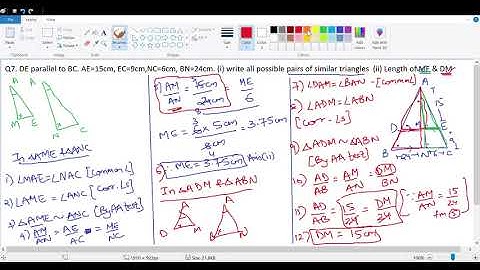 Q7. DE parallel to BC. AE=15cm, EC=9cm,NC=6cm, BN=24cm. (i) write all possible pairs of similar triangles (ii) Length of ME & DM
A A
M E
N C
In △AME & △ANC
1) ∠MAE=∠NAC [common ∠]
2) ∠AME = ∠ANC [Corr-∠s]
3) △AME ~ △ANC (By AA test)
4) AM/AN = AE/AC = ME/NC
5) AM/AN = 15cm/24cm = ME/6
ME = 6 x 5 cm / 8 = 3.75cm
6) ∴ ME = 3.75cm Ans(ii)
In △ADM & △ABN
A A
D M
N
7) ∠DAM = ∠BAN - [Common ∠]
8) ∠ADM = ∠ABN
[corr-∠s]
9) △ADM ~ △ABN
[By AA test]
10) AD/AB = AM/AN = DM/BN
11) AD/AB = 15/24 = DM/24 [∵ AM/AN = 15/24
12) DM = 15cm
A
15
D M E
B N C
100%